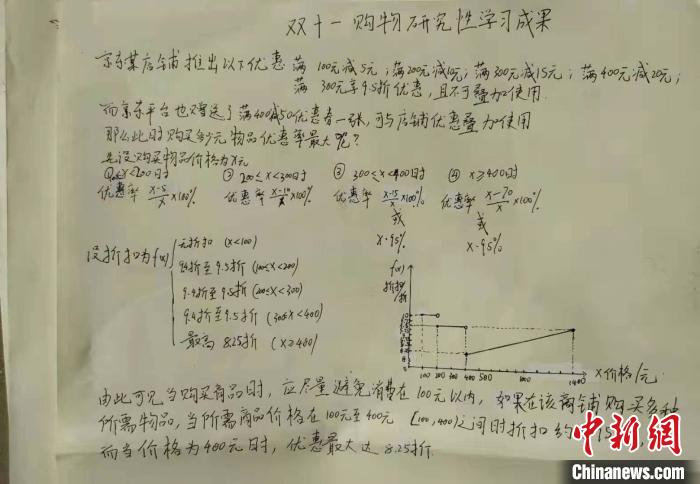 双十一购物研究性学习成果
京东某店铺推出以下优惠 满100元减5元；满200元减10元；满300元减15元；满400元减20元；
满300元享9.5折优惠，且不可叠加使用
而京东平台也赠送了满400减50优惠券一张，可与店铺优惠叠加使用
那么此时购买多少元物品优惠率最大呢？
先设购买物品价格为x元
①100≤x<200时 ② 200≤x<300时 ③ 300≤x<400时 ④ x≥400时
优惠率 x-5/x ×100% 优惠率 x-10/x ×100% 优惠率 x-15/x ×100% 优惠率 x-70/x ×100%
或 或
x·95% x·95%
设折扣为f(x)
无折扣 (x<100)
9.5折 (100≤x<200)
9.4折至9.5折 (200≤x<300)
9.4折至9.5折 (300≤x<400)
最高 8.25折 (x≥400)
f(x)
折扣/折
100 200 300 400 500 1400
x价格/元
由此可见当购买商品时，应尽量避免消费在100元以内，如果在该商铺购买多种
所需物品，当所需商品价格在100元至400元 [100,400)之间时折扣约
而当价格为400元时，优惠最大达8.25折.
中新网
Chinanews.com